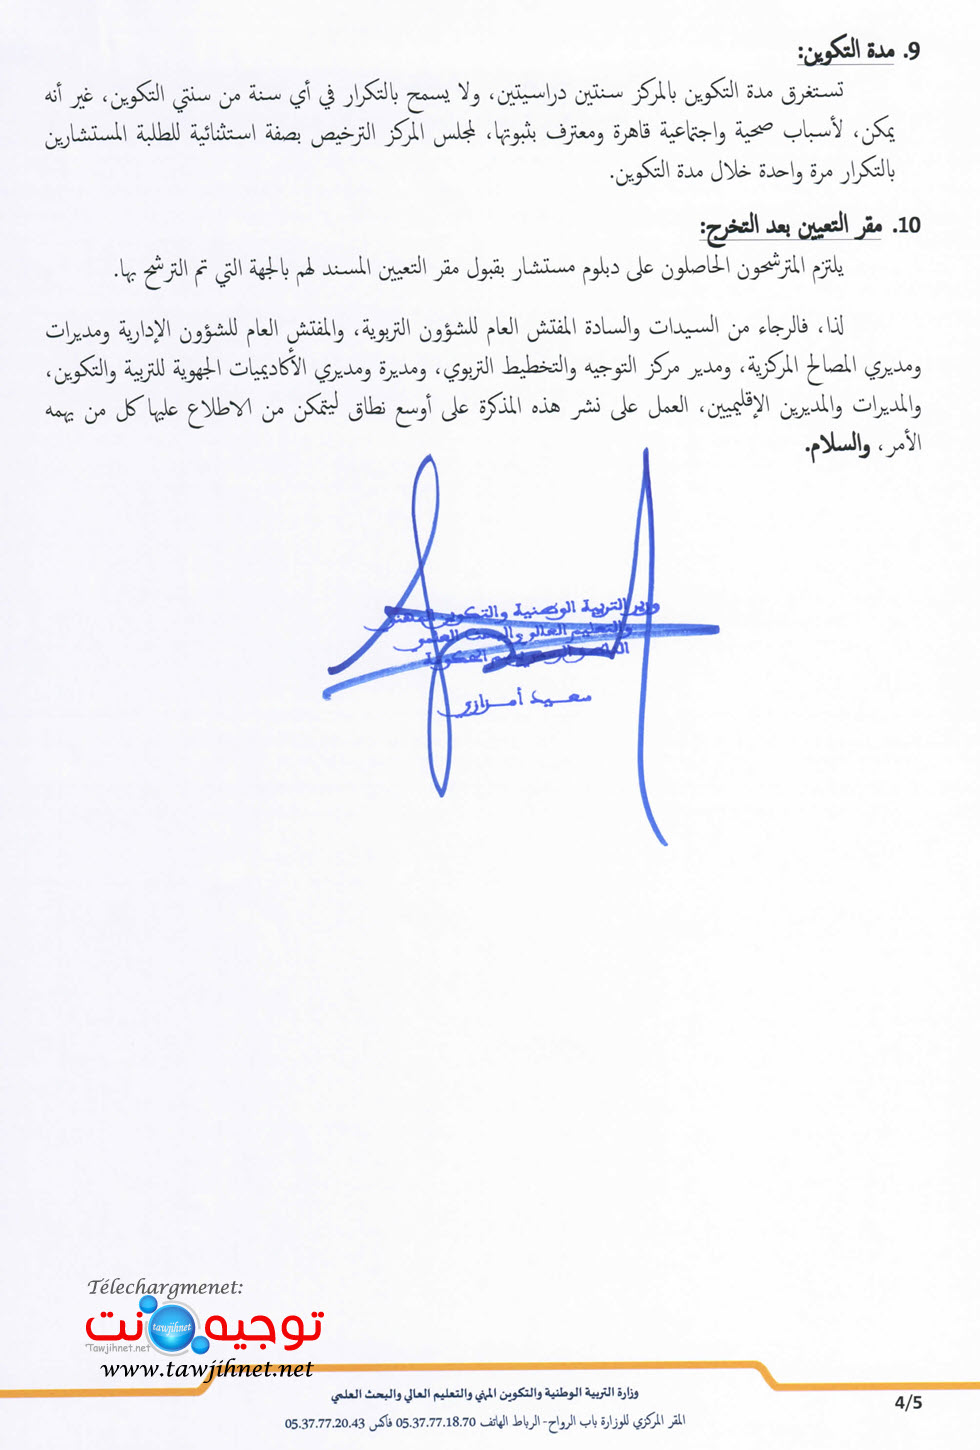 9. مدة التكوين:
تستغرق مدة التكوين بالمركز سنتين دراسيتين، ولا يسمح بالتكرار في أي سنة من سنتي التكوين، غير أنه
يمكن، لأسباب صحية واجتماعية قاهرة ومعترف بثبوتها، لمجلس المركز الترخيص بصفة استثنائية للطلبة المستشارين
بالتكرار مرة واحدة خلال مدة التكوين.
10. مقر التعيين بعد التخرج:
يلتزم المترشحون الحاصلون على دبلوم مستشار بقبول مقر التعيين المسند لهم بالجهة التي تم الترشح بها.
لذا، فالرجاء من السيدات والسادة المفتش العام للشؤون التربوية، والمفتش العام للشؤون الإدارية ومديرات
ومديري المصالح المركزية، ومدير مركز التوجيه والتخطيط التربوي، ومديرة ومديري الأكاديميات الجهوية للتربية والتكوين،
والمديرات والمديرين الإقليميين، العمل على نشر هذه المذكرة على أوسع نطاق ليتمكن من الاطلاع عليها كل من يهمه
الأمر، والسلام.
وزير التربية الوطنية والتكوين المهني
والتعليم العالي والبحث العلمي
سعيد أمزازي
Télechargmenet:
توجيه نت
tawjihnet
Tawjihnet.net
www.tawjihnet.net
وزارة التربية الوطنية والتكوين المهني والتعليم العالي والبحث العلمي
المقر المركزي للوزارة باب الرواح- الرباط الهاتف 05.37.77.18.70 فاكس 05.37.77.20.43
4/5